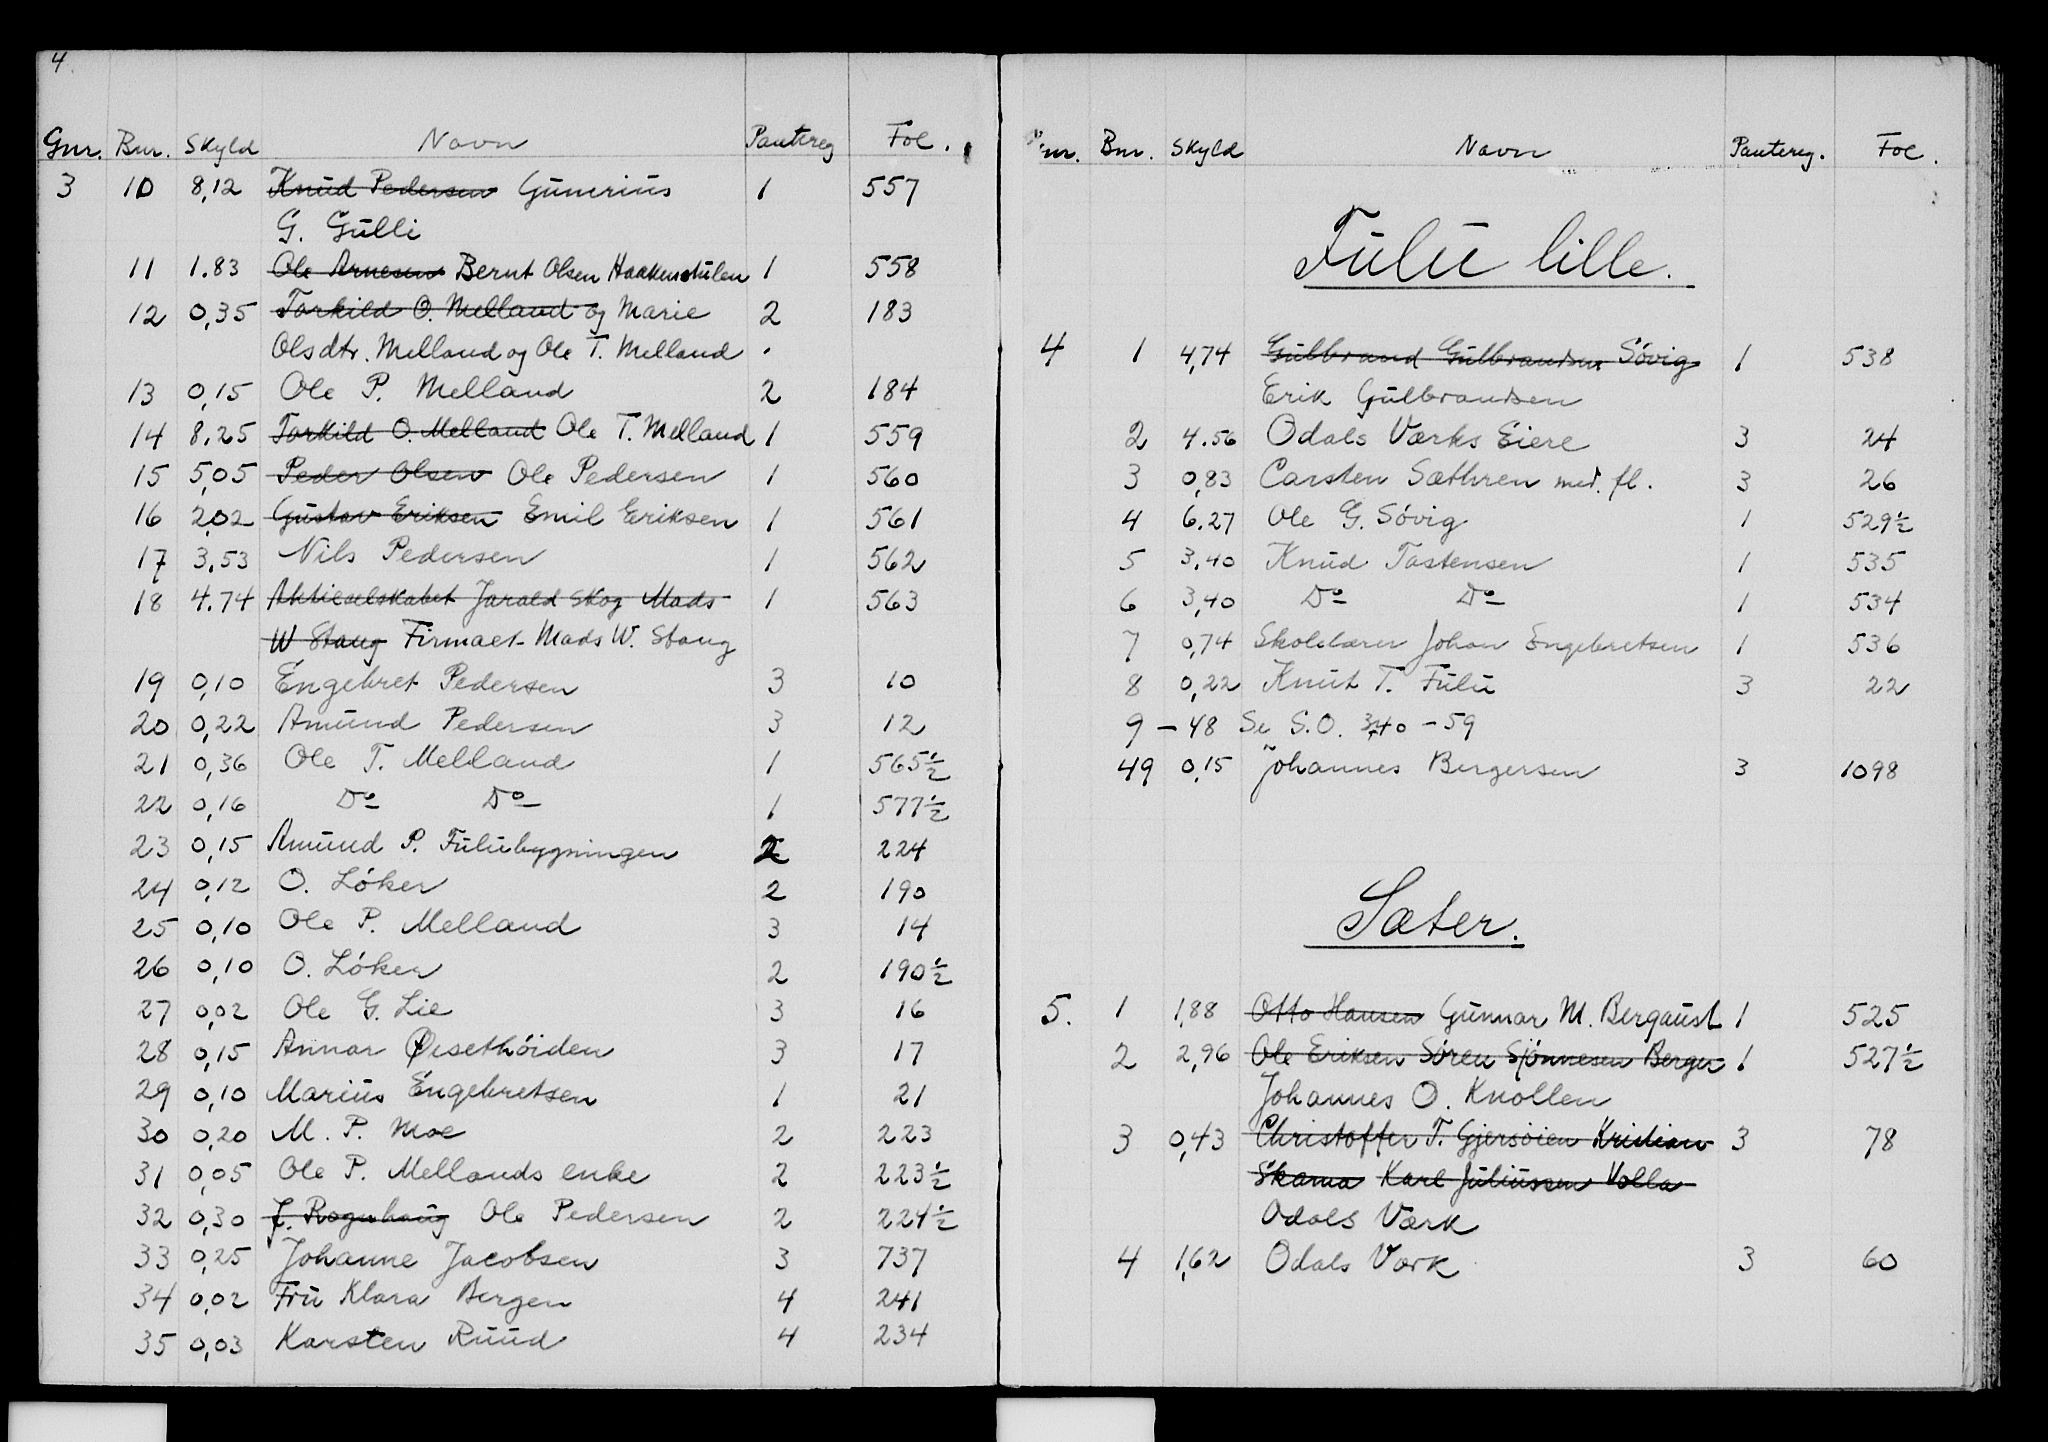 4.
Gnr. Bnr. Skyld Navn Pantereg Fol.
3 10 8,12 Knud Pedersen Gunerius 1 557
G. Gulli
11 1.83 Ole Arnesen Bernt Olsen Haakenstulen 1 558
12 0,35 Torkild O. Melland og Marie 2 183
Olsdtr. Melland og Ole T. Melland
13 0,15 Ole P. Melland 2 184
14 8,25 Torkild O. Melland Ole T. Melland 1 559
15 5,05 Peder Olsen Ole Pedersen 1 560
16 2,02 Gustav Eriksen Emil Eriksen 1 561
17 3,53 Nils Pedersen 1 562
18 4.74 Aktieselskabet Jarald Skog Mads 1 563
W Stang Firmaet Mads W. Stang
19 0,10 Engebret Pedersen 3 10
20 0,22 Amund Pedersen 3 12
21 0,36 Ole T. Melland 1 565½
22 0,16 Do Do 1 577½
23 0,15 Amund P. Fulubygningen 2 224
24 0,12 O. Löker 2 190
25 0,10 Ole P. Melland 3 14
26 0,10 O. Löker 2 190½
27 0,02 Ole G. Lie 3 16
28 0,15 Annar Øiesethöiden 3 17
29 0,10 Marius Engebretsen 1 21
30 0,20 M. P. Moe 2 223
31 0,05 Ole P. Mellands enke 2 223½
32 0,30 J. Rognhaug Ole Pedersen 2 224½
33 0,25 Johanne Jacobsen 3 737
34 0,02 Fru Klara Bergen 4 241
35 0,03 Karsten Ruud 4 234
nr. Bnr. Skyld Navn Pantereg. Fol.
Fulu lille.
4 1 4,74 Gulbrand Gulbrandsen Sövig 1 538
Erik Gulbrandsen
2 4.56 Odals Værks Eiere 3 24
3 0,83 Carsten Sæthren med. fl. 3 26
4 6.27 Ole G. Sövig 1 529½
5 3,40 Knud Tostensen 1 535
6 3,40 Do Do 1 534
7 0,74 Skolelærer Johan Engebretsen 1 536
8 0,22 Knut T. Fulu 3 22
9 – 48 Se S.O. 340 – 59
49 0,15 Johannes Bergersen 3 1098
Sæter.
5. 1 1,88 Otto Hansen Gunnar M. Bergaust 1 525
2 2,96 Ole Eriksen Sören Sjönnesen Berger 1 527½
Johannes O. Knollen
3 0,43 Christoffer T. Gjersöien Kristian 3 78
Skarna Karl Juliussen Volla
Odals Værk
4 1,62 Odals Værk 3 60